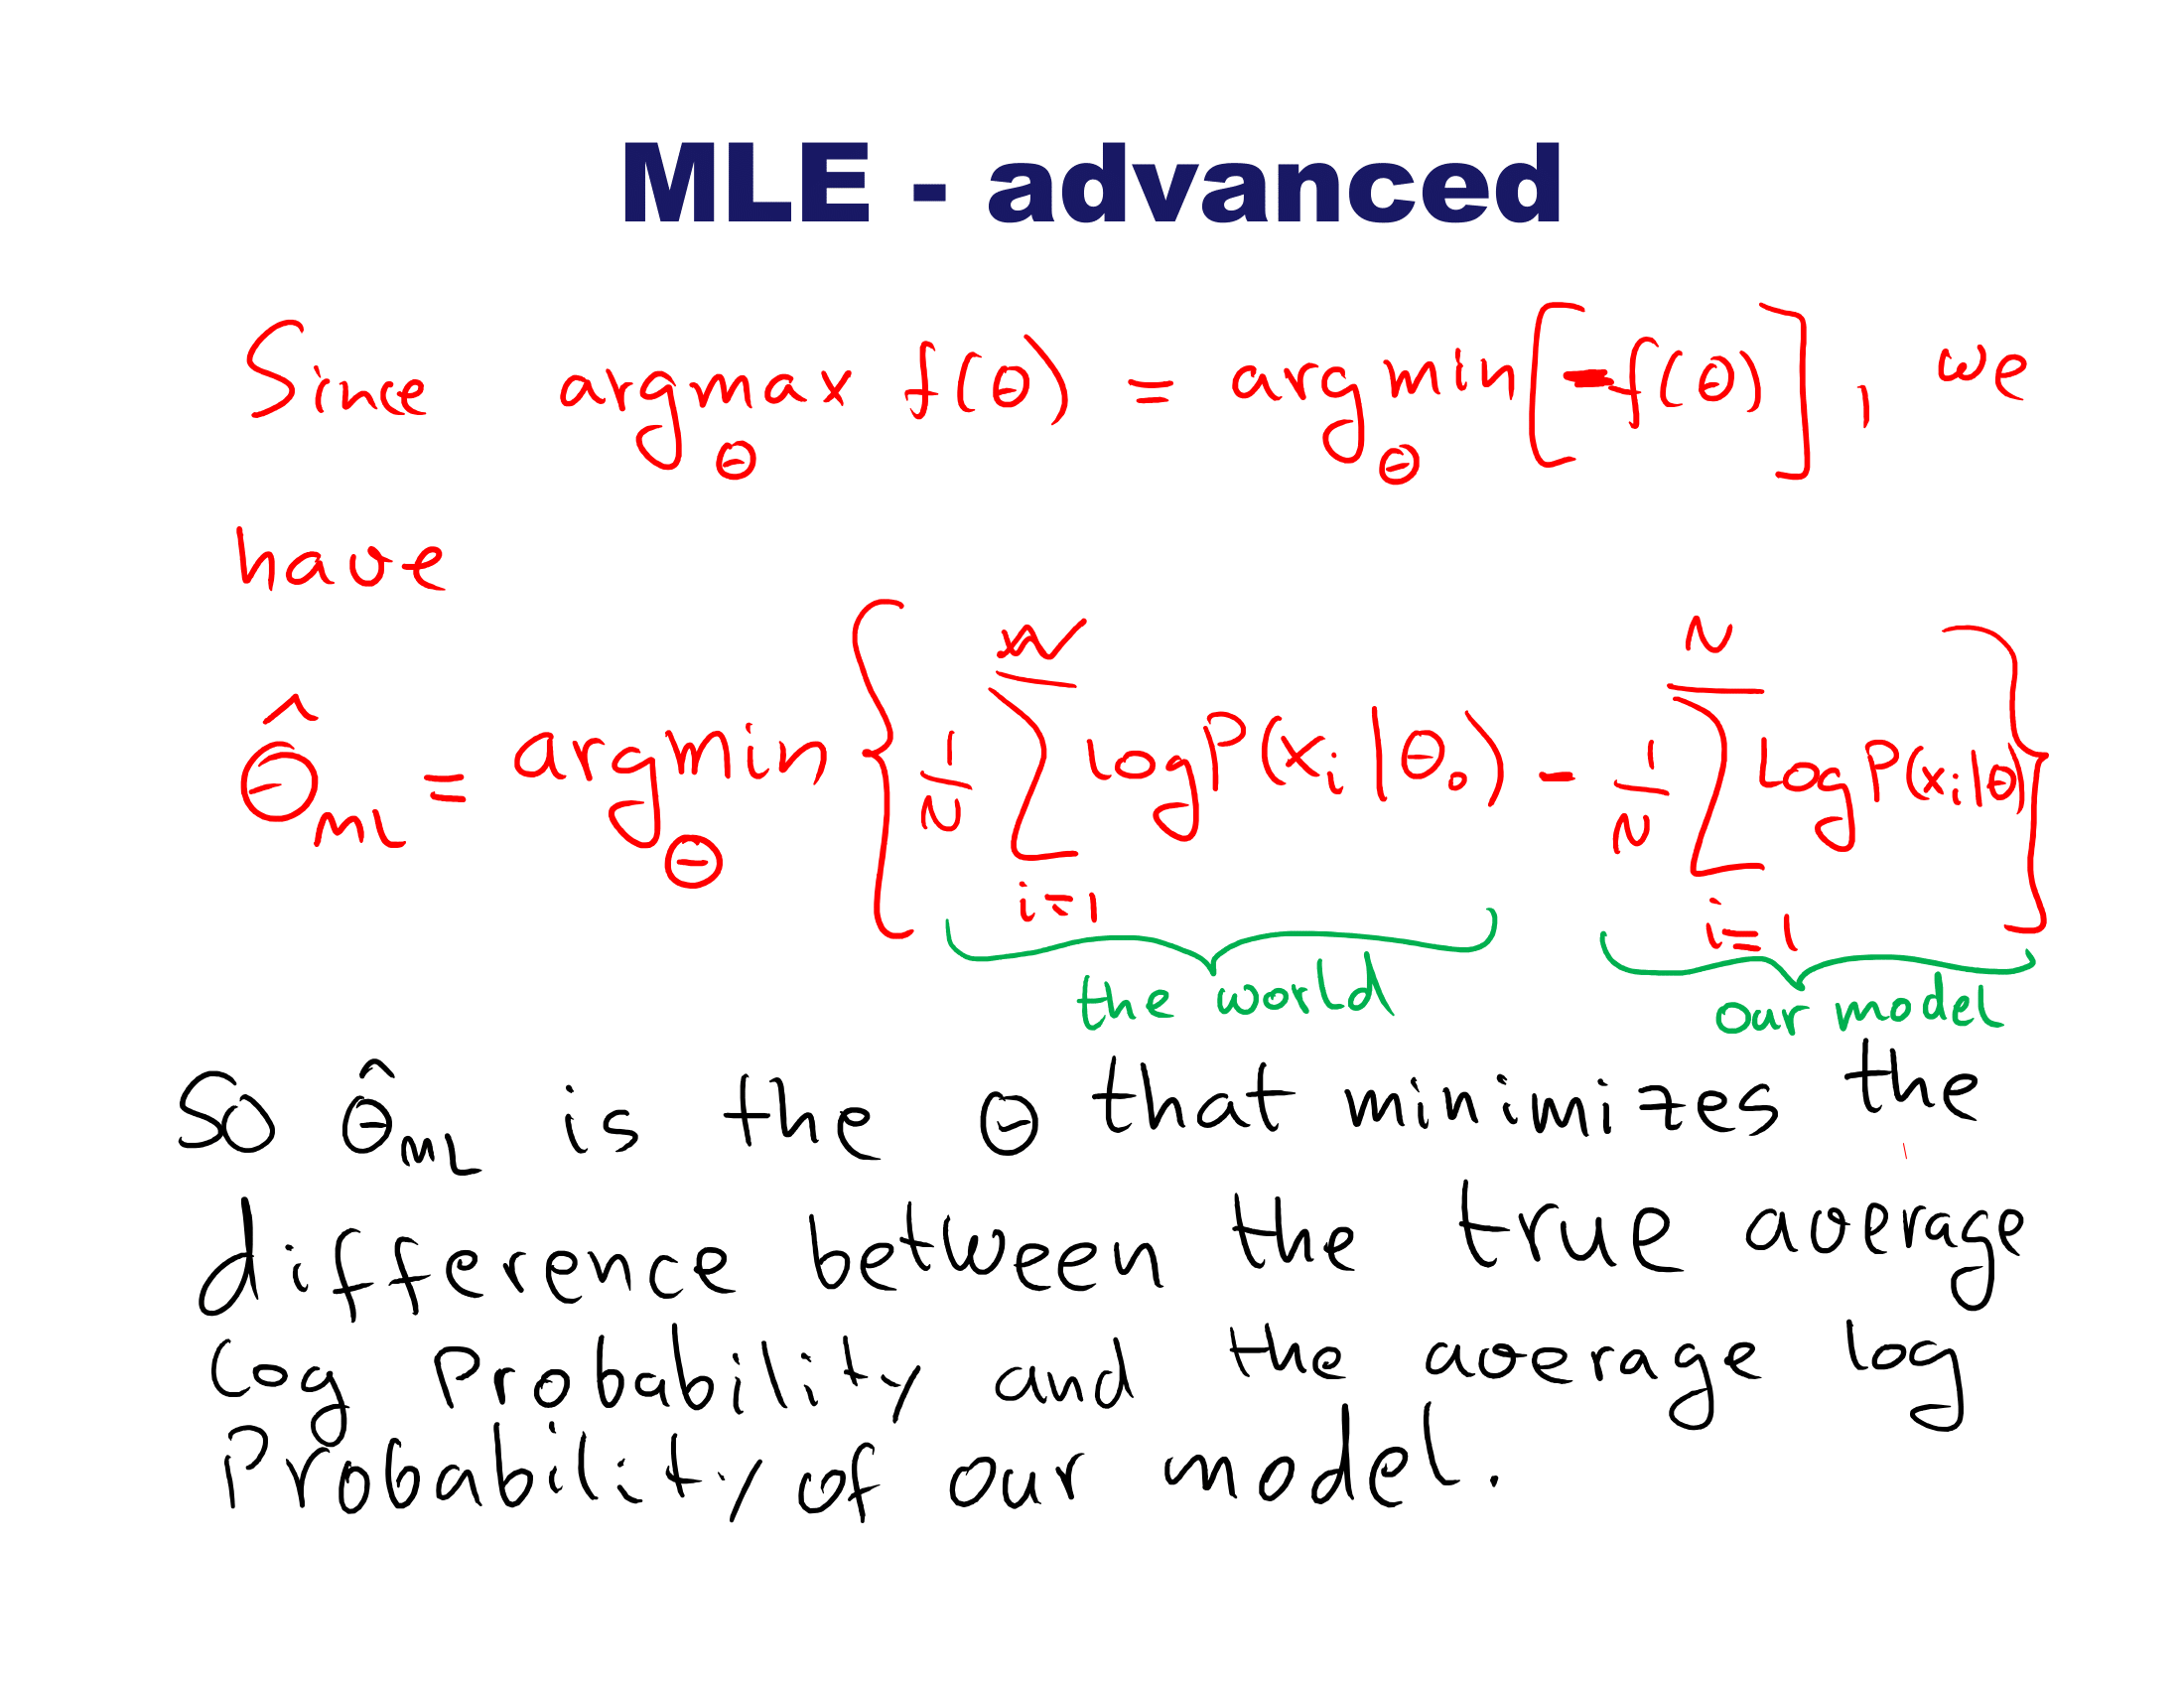 MLE - advanced
Since argmax_θ f(θ) = argmin_θ [-f(θ)], we
have
θ̂_m = argmin_θ { 1/N ∑_{i=1}^{N} log P(x_i|θ_0) - 1/N ∑_{i=1}^{N} log P(x_i|θ) }
the world our model
So θ̂_m is the θ that minimizes the
difference between the true average
log probability and the average log
Probability of our model.